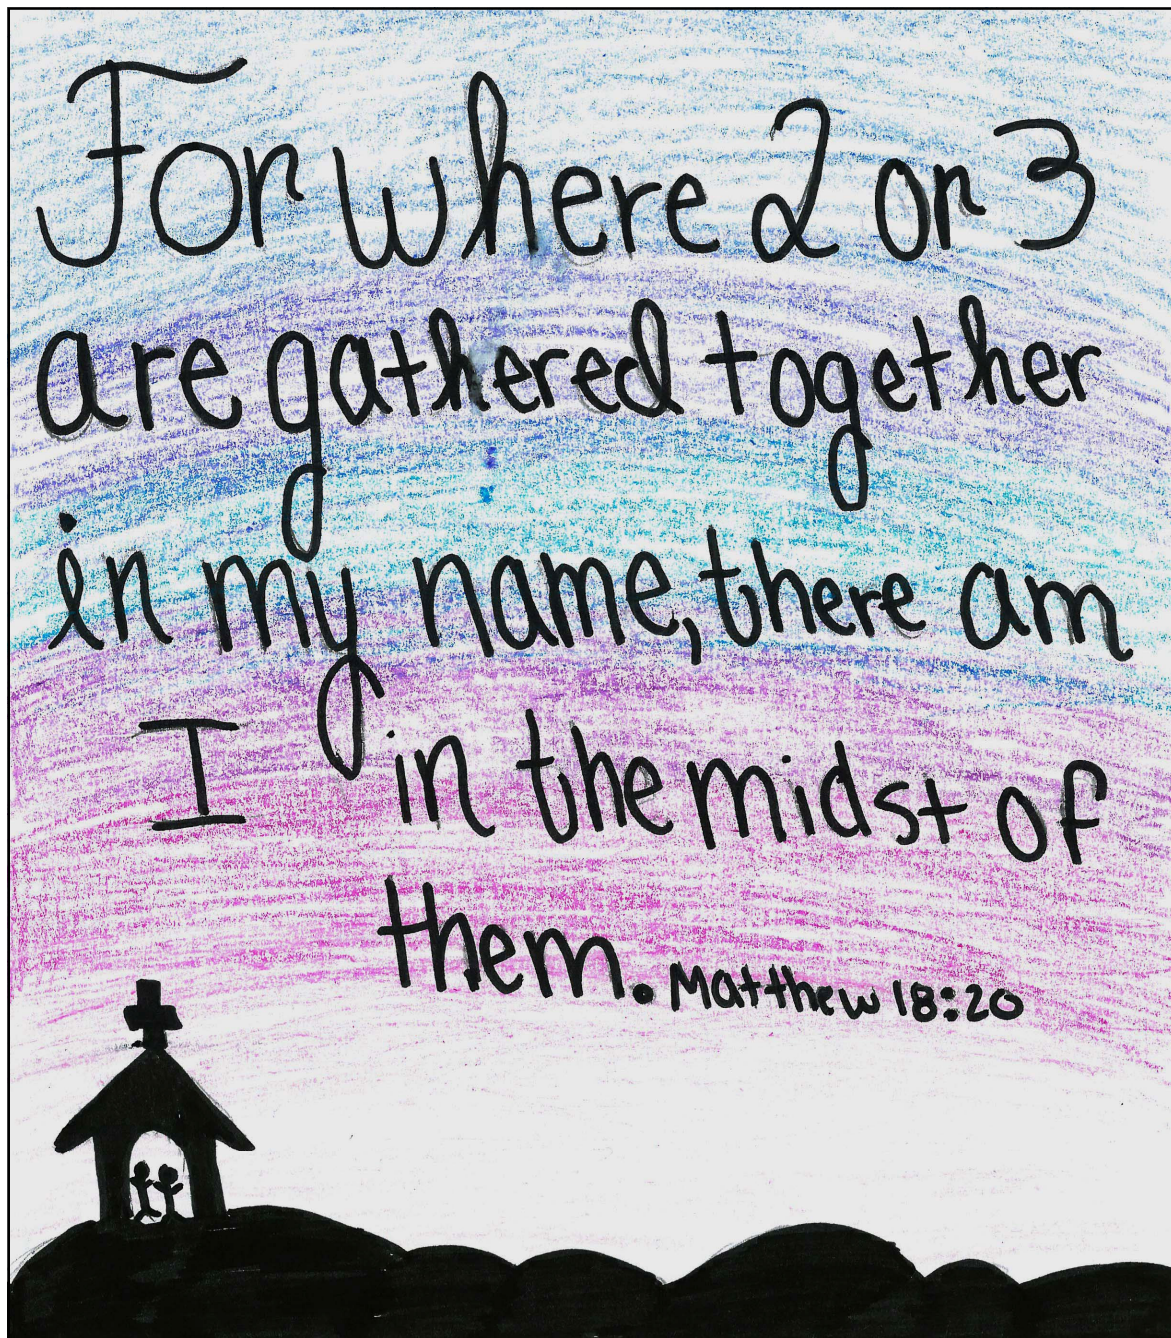 For where 2 or 3
are gathered together
in my name, there am
I in the midst of
them. Matthew 18:20